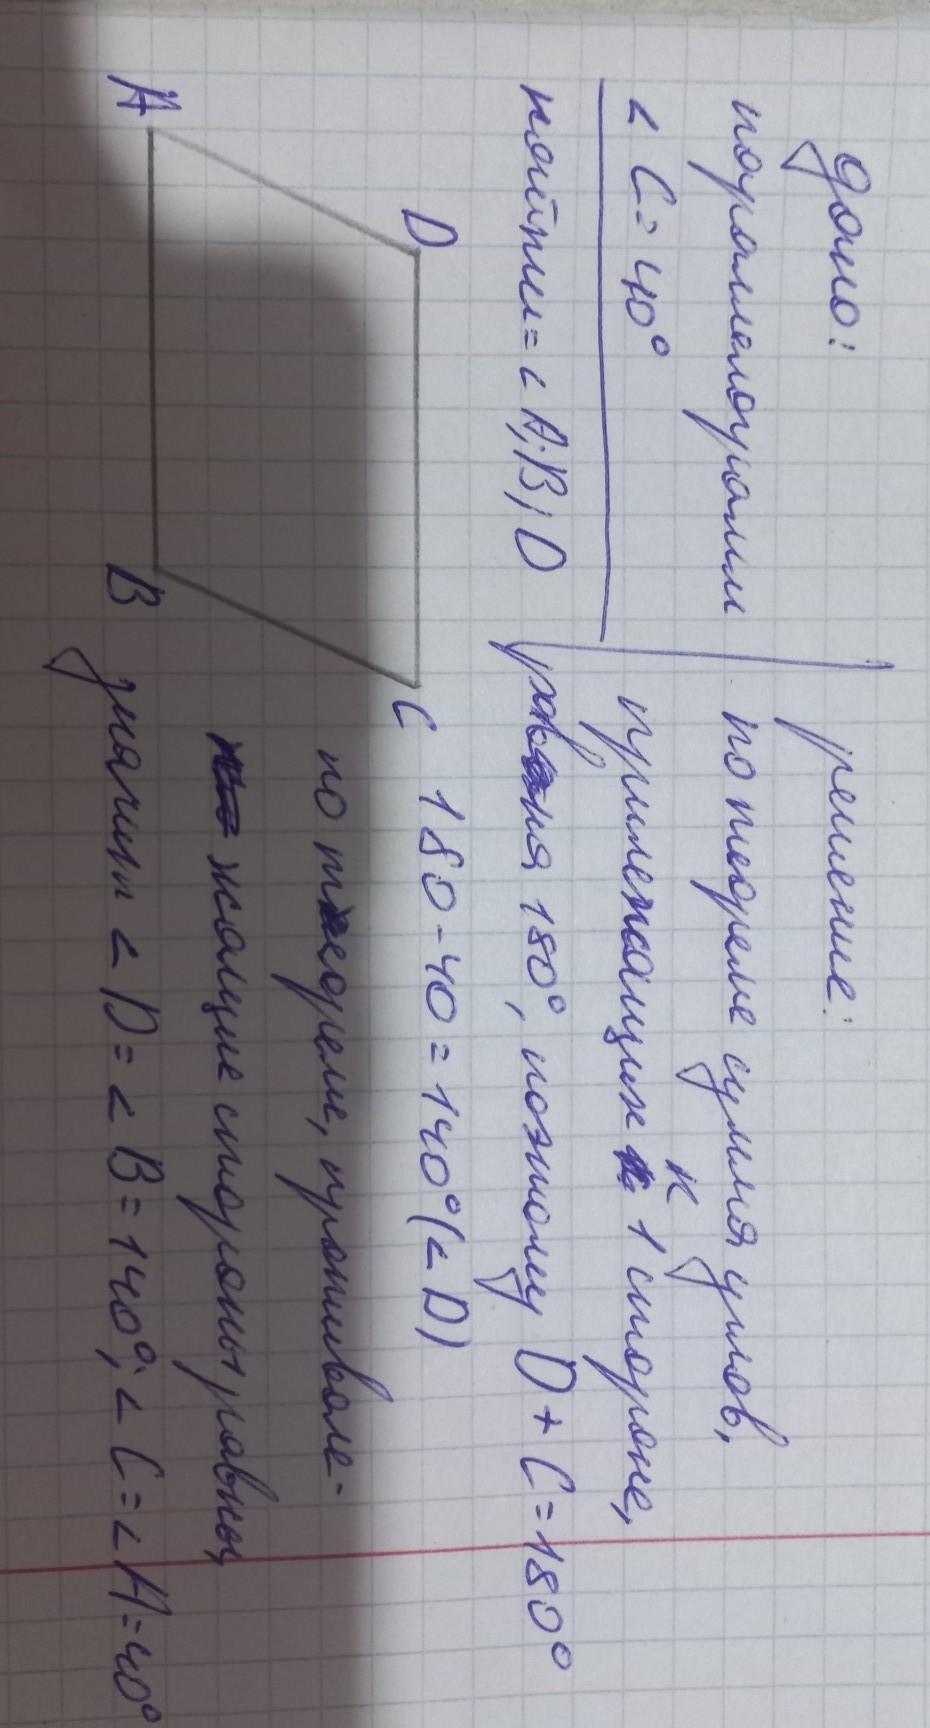 дано:
параллелограмм
< C = 40°
найти = < A; B; D
A
D
B
C
решение:
по теореме сумма углов,
прилежащих к 1 стороне,
равная 180°, поэтому D + C = 180°
180 - 40 = 140° (< D)
по теореме, противоле-
жащие стороны равны,
значит < D = < B = 140°; < C = < A = 40°